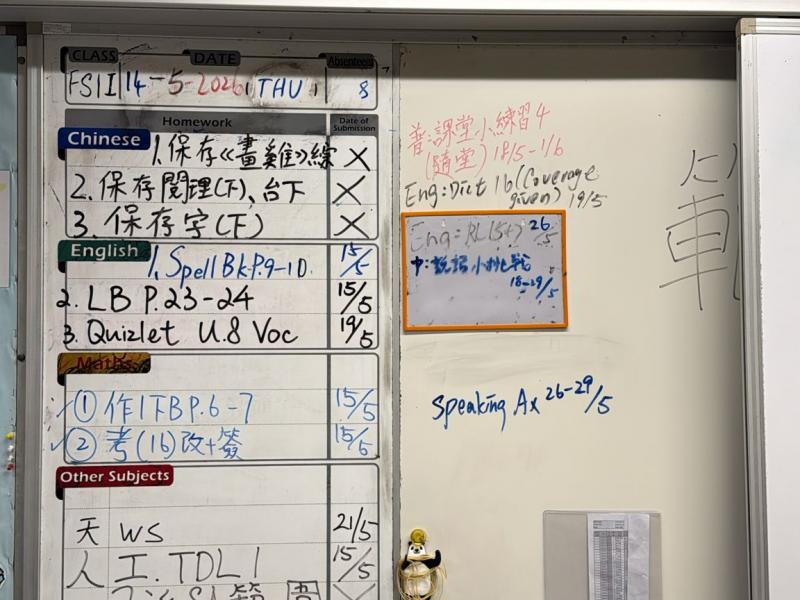 CLASS DATE Absentees
FS11 14-5-2026, THU, 8
Homework Date of Submission
Chinese
1.保存《畫雞》綜 X
2.保存閱理(下)、台下 X
3.保存字(下) X
English
1. Spell Bk P.9-10. 15/5
2. LB P.23-24 15/5
3. Quizlet U.8 Voc 19/5
Maths
① 作1下B P.6-7 15/5
② 考(16)改+簽 15/5
Other Subjects
天 WS 21/5
人 工.TDL 1 15/5
普:課堂小練習4
(隨堂) 18/5-1/6
Eng: Dict 16 (Coverage
given) 19/5
Eng: RL 26/5
中:說話小挑戰
18-29/5
Speaking Ax 26-29/5